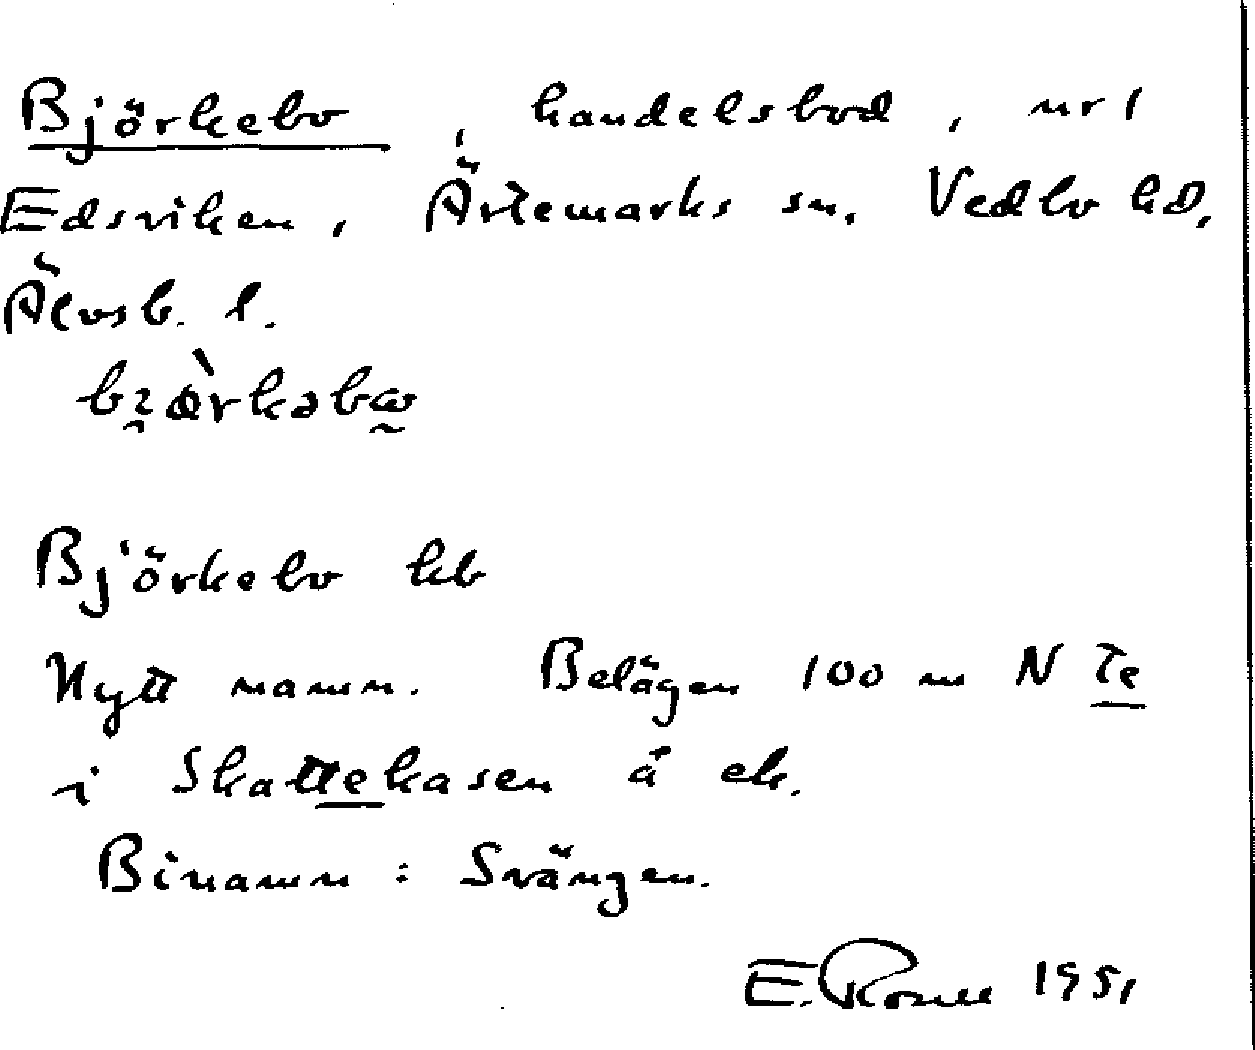 Björkebo, handelsbod, nr 1
Edsviken, Ärtemarks sn. Vedbo hd,
Älvsb. l.
Björkebo hb
Nytt namn. Belägen 100 m N Te
i Skattekasen å ek.
Binamn: Svängen.
E. 1951